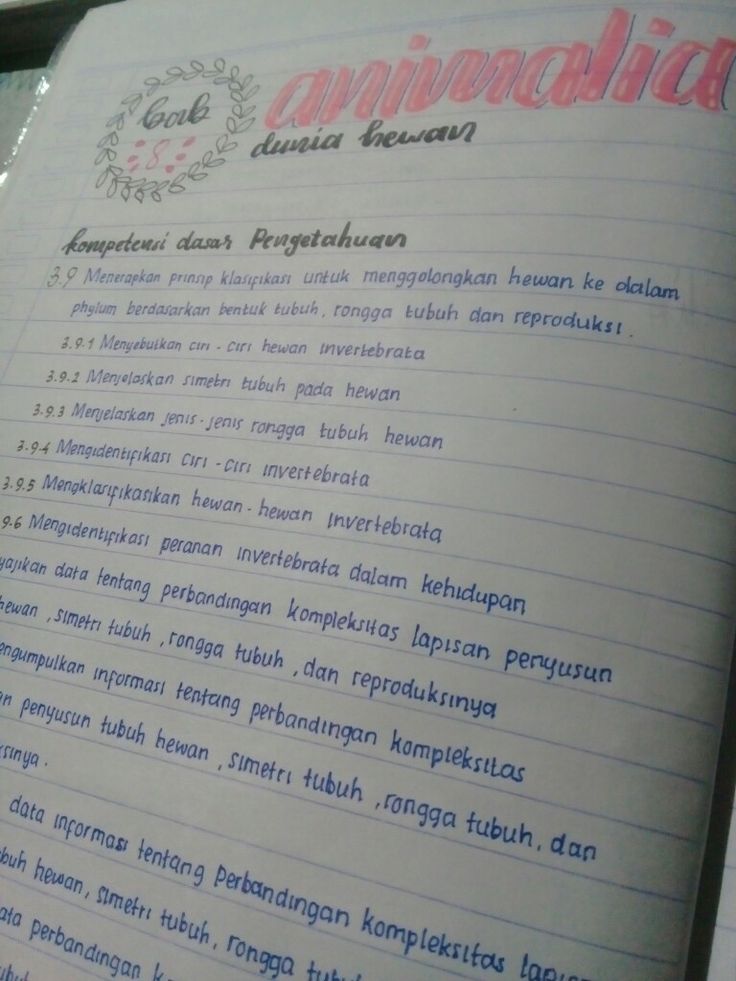 bab
8
animalia
dunia hewan
kompetensi dasar Pengetahuan
3.9 Menerapkan prinsip klasifikasi untuk menggolongkan hewan ke dalam
phylum berdasarkan bentuk tubuh, rongga tubuh dan reproduksi.
3.9.1 Menyebutkan ciri - ciri hewan invertebrata
3.9.2 Menjelaskan simetri tubuh pada hewan
3.9.3 Menjelaskan jenis-jenis rongga tubuh hewan
3.9.4 Mengidentifikasi ciri - ciri invertebrata
3.9.5 Mengklasifikasikan hewan - hewan invertebrata
9.6 Mengidentifikasi peranan invertebrata dalam kehidupan
yajikan data tentang perbandingan kompleksitas lapisan penyusun
hewan, simetri tubuh, rongga tubuh, dan reproduksinya
engumpulkan informasi tentang perbandingan kompleksitas
an penyusun tubuh hewan, simetri tubuh, rongga tubuh, dan
ksinya.
data informasi tentang perbandingan kompleksitas lapis
buh hewan, simetri tubuh, rongga tubu
ata perbandingan k